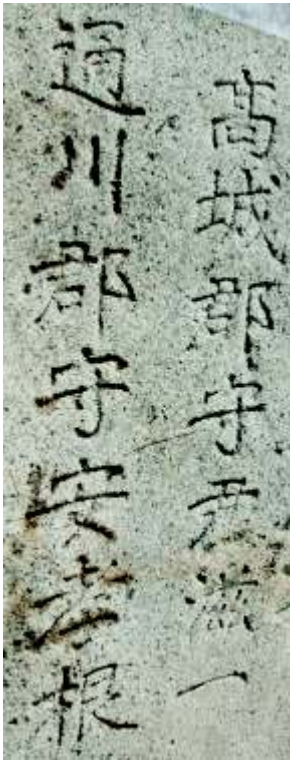 高城郡守尹滋一
通川郡守安孝根